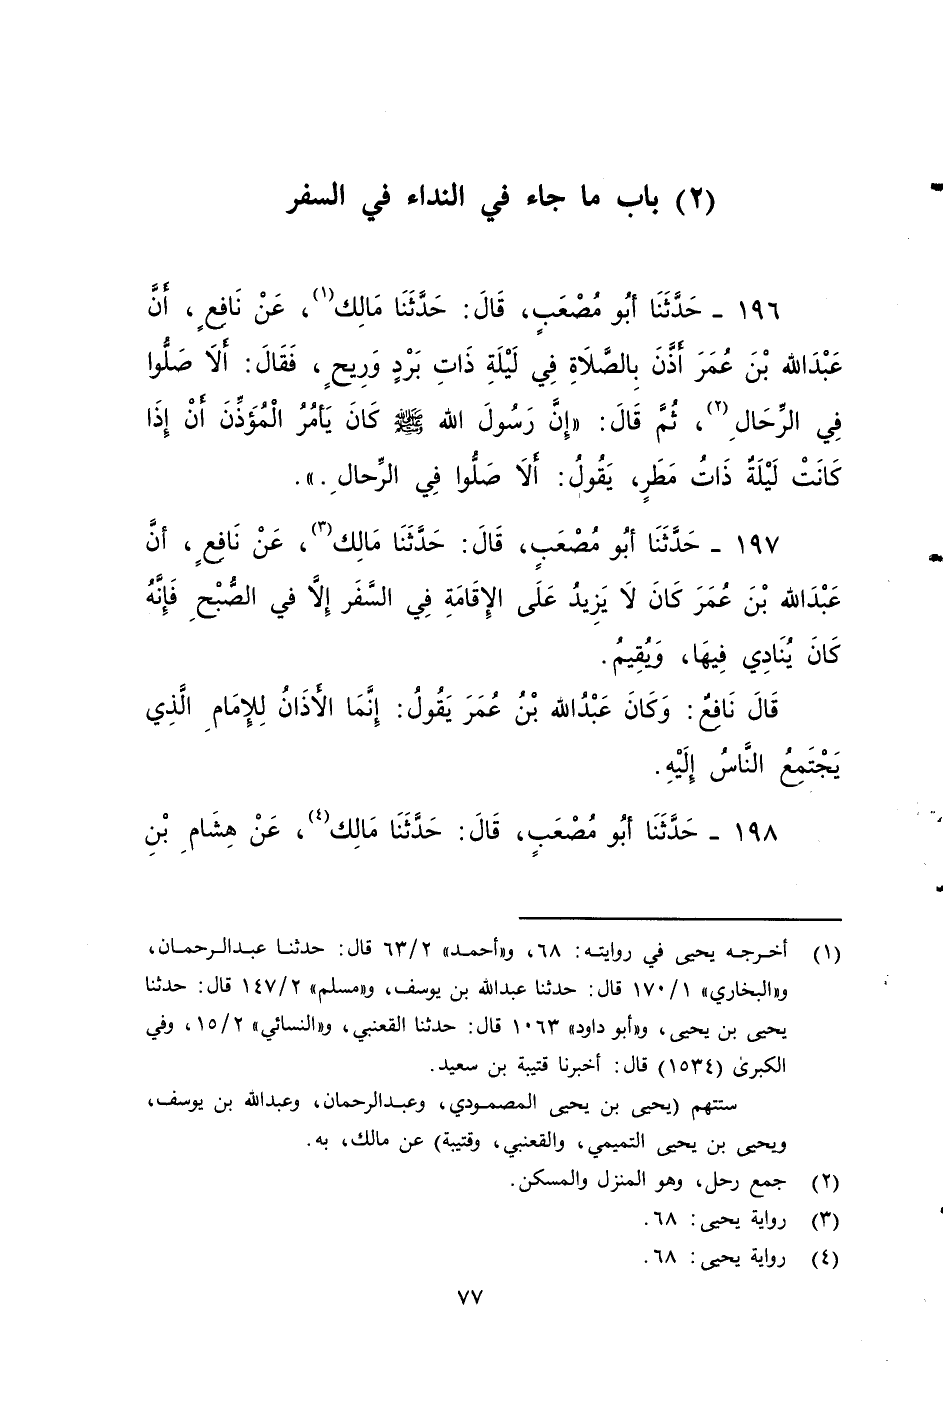 (٢) باب ما جاء في النداء في السفر
١٩٦ ـ حَدَّثَنَا أبُو مُصْعَبٍ، قَالَ: حَدَّثَنَا مَالِك(١)، عَنْ نَافِعٍ، أَنَّ
عَبْدَالله بْنَ عُمَرَ أَذَّنَ بِالصَّلَاةِ فِي لَيْلَةِ ذَاتِ بَرْدٍ وَرِيحٍ، فَقَالَ: أَلَا صَلُّوا
فِي الرِّحَالِ(٢)، ثُمَّ قَالَ: «إِنَّ رَسُولَ الله ﷺ كَانَ يَأمُرُ الْمُؤَذِّنَ أَنْ إِذَا
كَانَتْ لَيْلَةٌ ذَاتُ مَطَرٍ، يَقُولُ: أَلَا صَلُّوا فِي الرِّحالِ.».
١٩٧ ـ حَدَّثَنَا أبُو مُصْعَبٍ، قَالَ: حَدَّثَنَا مَالِك(٣)، عَنْ نَافِعٍ، أنَّ
عَبْدَالله بْنَ عُمَرَ كَانَ لَا يَزِيدُ عَلَى الإِقَامَةِ فِي السَّفَر إلَّا في الصُّبْحِ فَإِنَّهُ
كَانَ يُنَادِي فِيهَا، وَيُقِيمُ.
قَالَ نَافِعٌ: وَكَانَ عَبْدُالله بْنُ عُمَرَ يَقُولُ: إِنَّمَا الأَذَانُ لِلإِمَامِ الَّذِي
يَجْتَمِعُ النَّاسُ إِلَيْهِ.
١٩٨ ـ حَدَّثَنَا أبُو مُصْعَبٍ، قَالَ: حَدَّثَنَا مَالِك(٤)، عَنْ هِشَامِ بْنِ
(١) أخرجه يحيى في روايته: ٦٨، و«أحمد» ٦٣/٢ قال: حدثنا عبدالرحمان،
و«البخاري» ١٧٠/١ قال: حدثنا عبدالله بن يوسف، و«مسلم» ١٤٧/٢ قال: حدثنا
يحيى بن يحيى، و«أبو داود» ١٠٦٣ قال: حدثنا القعنبي، و«النسائي» ١٥/٢، وفي
الكبرىٰ (١٥٣٤) قال: أخبرنا قتيبة بن سعيد.
ستتهم (يحيى بن يحيى المصمودي، وعبدالرحمان، وعبدالله بن يوسف،
ويحيى بن يحيى التميمي، والقعنبي، وقتيبة) عن مالك، به.
(٢) جمع رحل، وهو المنزل والمسكن.
(٣) رواية يحيى: ٦٨.
(٤) رواية يحيى: ٦٨.
٧٧